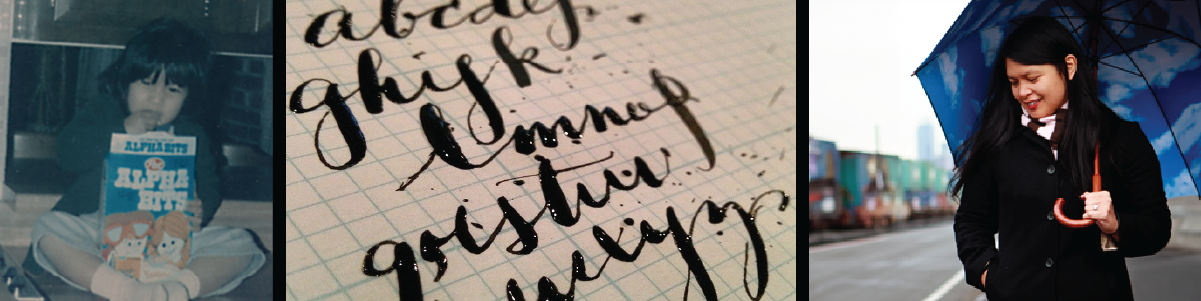 ALPHABITS
ALPHA
BITS
abcdef
ghijk
lmnop
qrstuv
wxyz